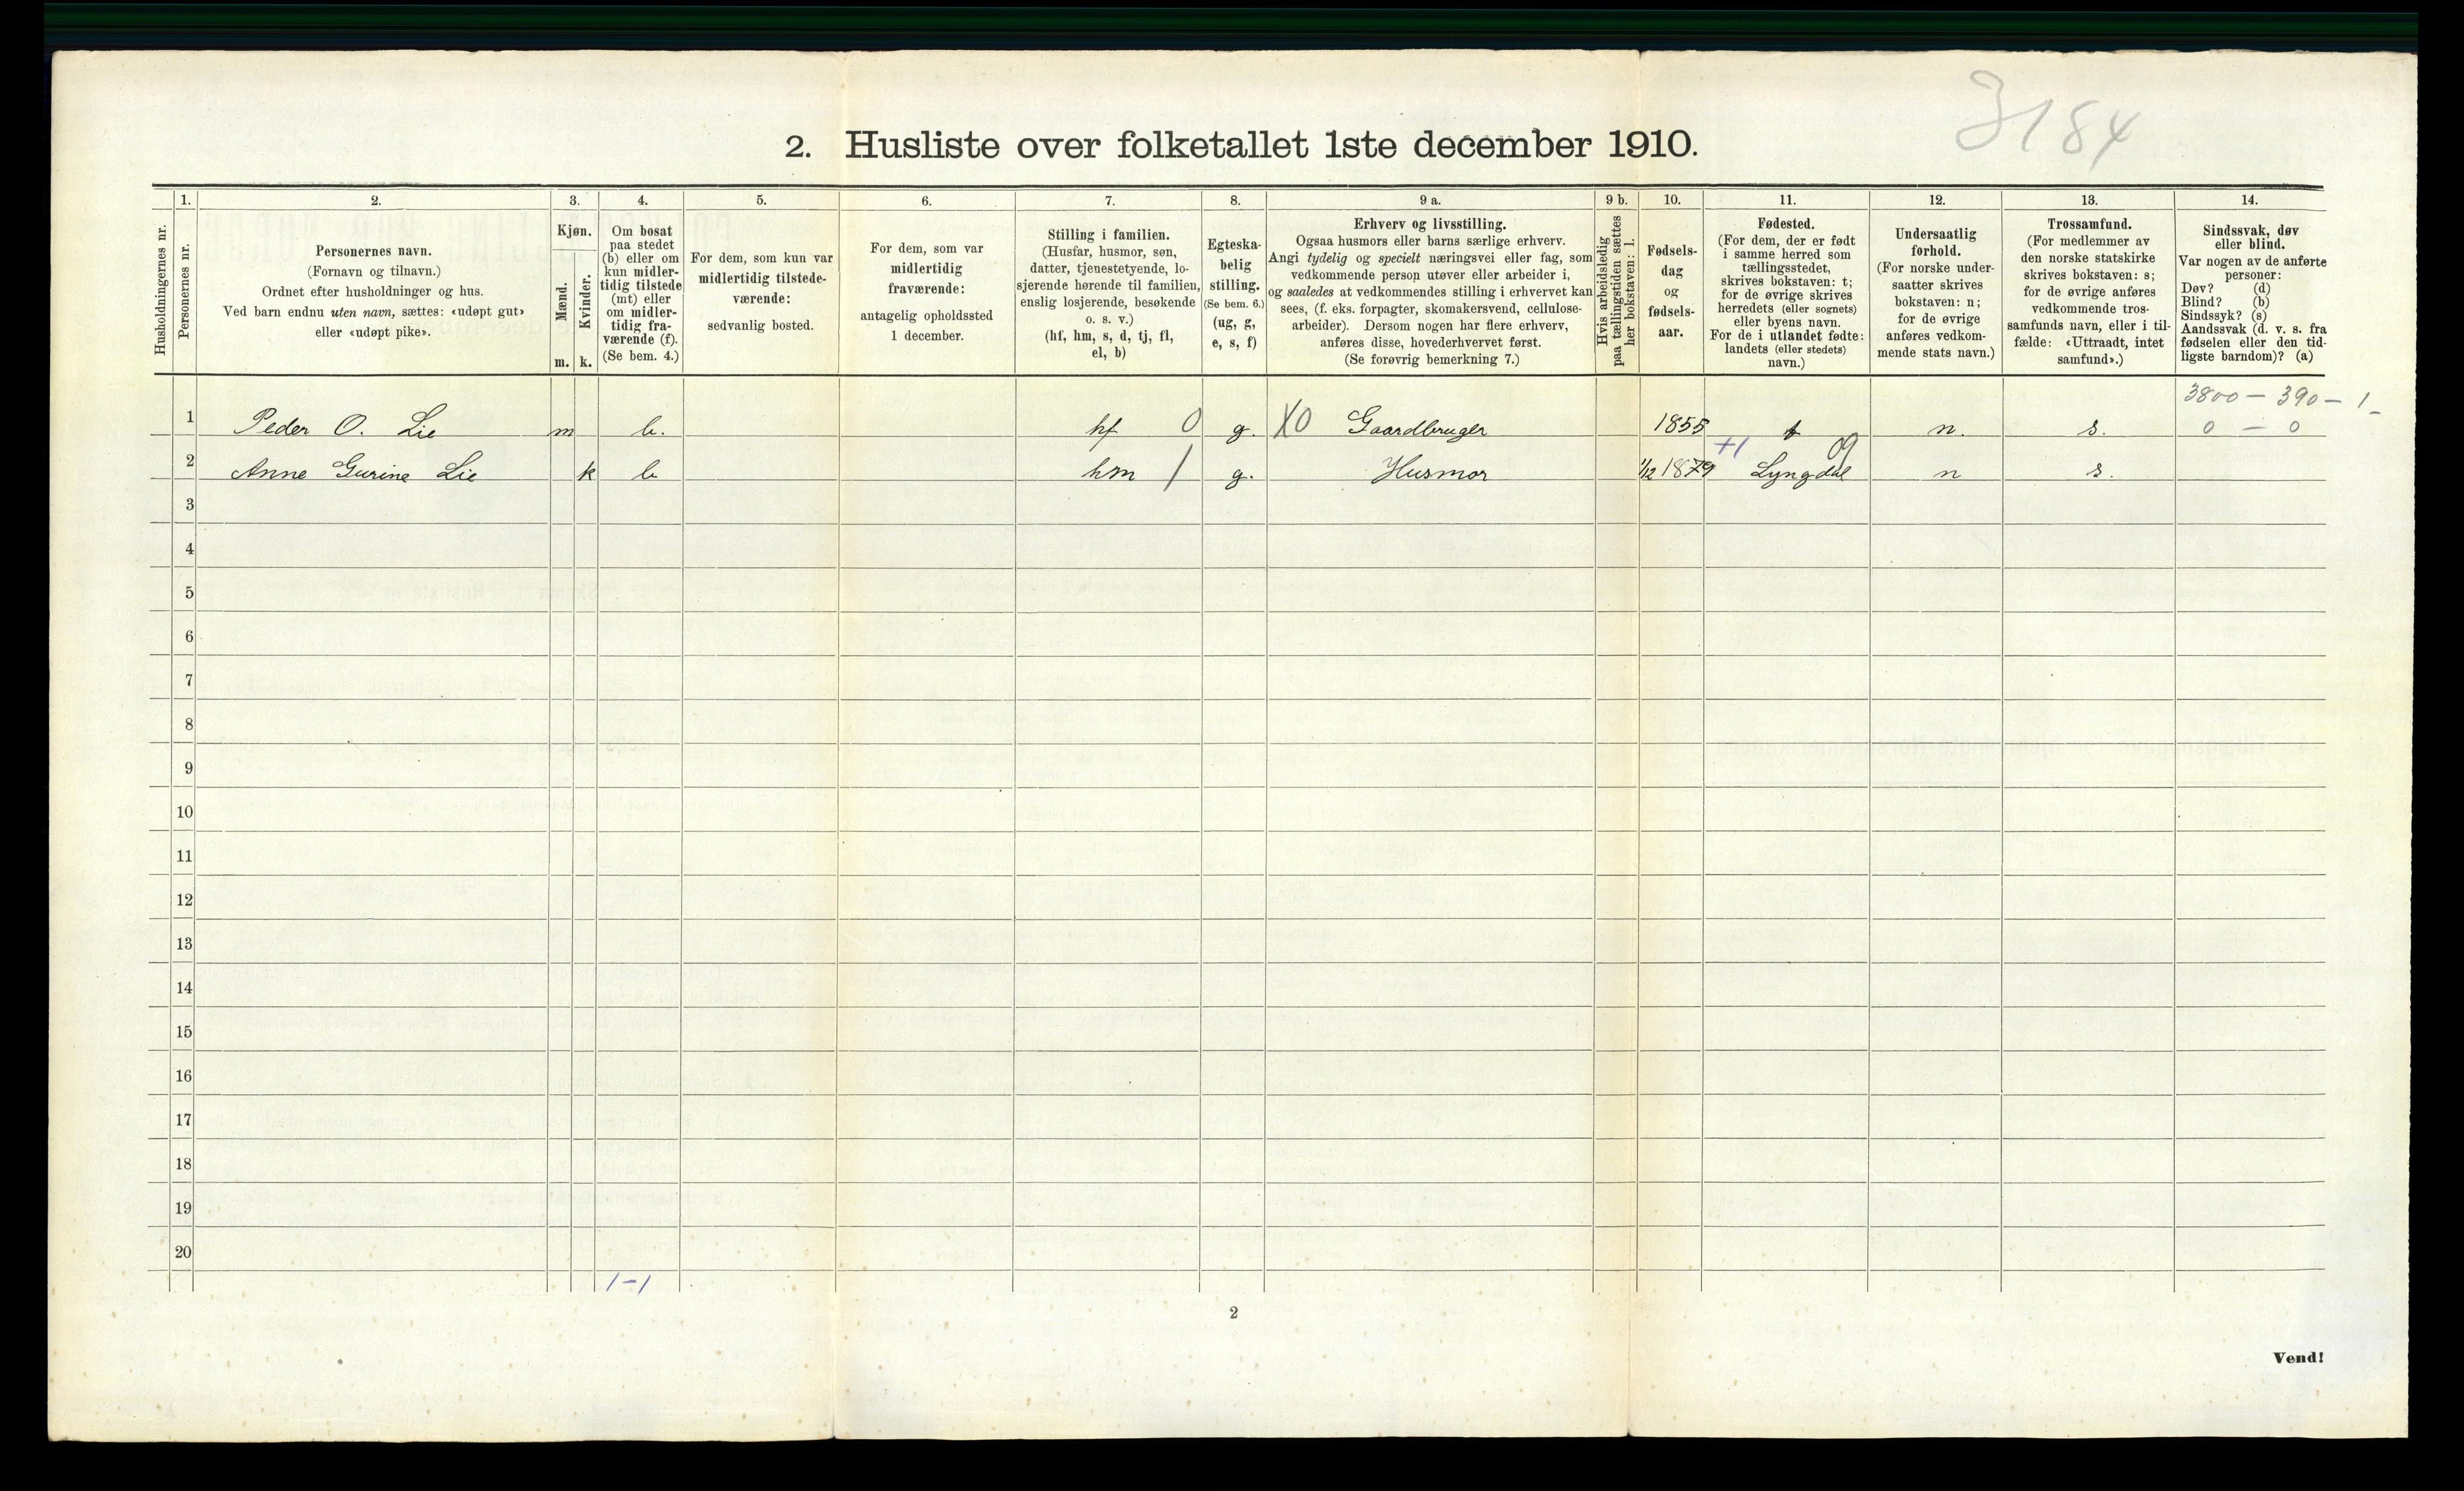 3184
2. Husliste over folketallet 1ste december 1910.
Husholdningernes nr.
1.
Personernes nr.
2.
Personernes navn.
(Fornavn og tilnavn.)
Ordnet efter husholdninger og hus.
Ved barn endnu uten navn, sættes: «udøpt gut»
eller «udøpt pike».
3.
Kjøn.
Mænd.
m.
Kvinder.
k.
4.
Om bosat
paa stedet
(b) eller om
kun midler-
tidig tilstede
(mt) eller
om midler-
tidig fra-
værende (f).
(Se bem. 4.)
5.
For dem, som kun var
midlertidig tilstede-
værende:
sedvanlig bosted.
6.
For dem, som var
midlertidig
fraværende:
antagelig opholdssted
1 december.
7.
Stilling i familien.
(Husfar, husmor, søn,
datter, tjenestetyende, lo-
sjerende hørende til familien,
enslig losjerende, besøkende
o. s. v.)
(hf, hm, s, d, tj, fl,
el, b)
8.
Egteska-
belig
stilling.
(Se bem. 6.)
(ug, g,
e, s, f)
9 a.
Erhverv og livsstilling.
Ogsaa husmors eller barns særlige erhverv.
Angi tydelig og specielt næringsvei eller fag, som
vedkommende person utøver eller arbeider i,
og saaledes at vedkommendes stilling i erhvervet kan
sees, (f. eks. forpagter, skomakersvend, cellulose-
arbeider). Dersom nogen har flere erhverv,
anføres disse, hovederhvervet først.
(Se forøvrig bemerkning 7.)
9 b.
Hvis arbeidsledig
paa tællingstiden sættes
her bokstaven: l.
10.
Fødsels-
dag
og
fødsels-
aar.
11.
Fødested.
(For dem, der er født
i samme herred som
tællingsstedet,
skrives bokstaven: t;
for de øvrige skrives
herredets (eller sognets)
eller byens navn.
For de i utlandet fødte:
landets (eller stedets)
navn.)
12.
Undersaatlig
forhold.
(For norske under-
saatter skrives
bokstaven: n;
for de øvrige
anføres vedkom-
mende stats navn.)
13.
Trossamfund.
(For medlemmer av
den norske statskirke
skrives bokstaven: s;
for de øvrige anføres
vedkommende tros-
samfunds navn, eller i til-
fælde: «Uttraadt, intet
samfund».)
14.
Sindssvak, døv
eller blind.
Var nogen av de anførte
personer:
Døv? (d)
Blind? (b)
Sindssyk? (s)
Aandssvak (d. v. s. fra
fødselen eller den tid-
ligste barndom)? (a)
3800 - 390 - 1-
1 Peder O. Lie m b. hf 0 g. X0 Gaardbruger 1855 t n. s. 0 - 0
+1 09
2 Anne Gurine Lie k b hm / g. Husmor 1/12 1879 Lyngdal n s.
3
4
5
6
7
8
9
10
11
12
13
14
15
16
17
18
19
20
1-1
2
Vend!